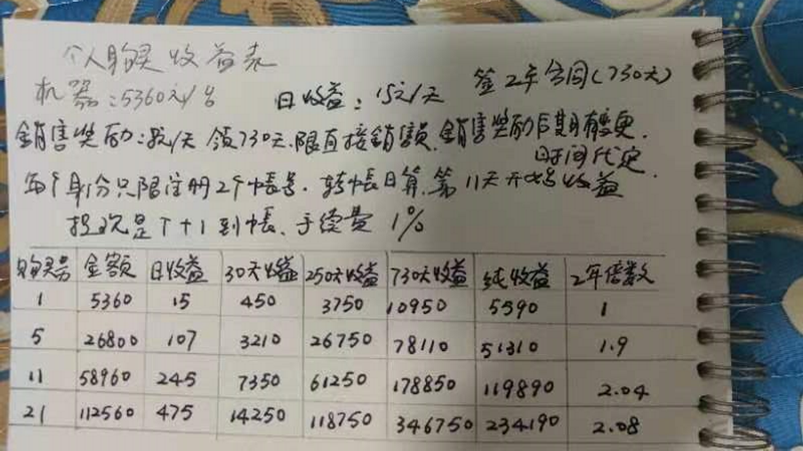 个人购买收益表
机器:5360元/台 日收益:15元/天 签2年合同(730天)
銷售奖励:3元/天 领730天.限直接銷售額.銷售奖励后期有变更.
时间代定
每个身份只限注册2个帳号.转帳日算.第11天开始收益
提现是T+1到帳.手续费1%
购买号 金额 日收益 30天收益 250天收益 730天收益 纯收益 2年倍数
1 5360 15 450 3750 10950 5590 1
5 26800 107 3210 26750 78110 51310 1.9
11 58960 245 7350 61250 178850 119890 2.04
21 112560 475 14250 118750 346750 234190 2.08